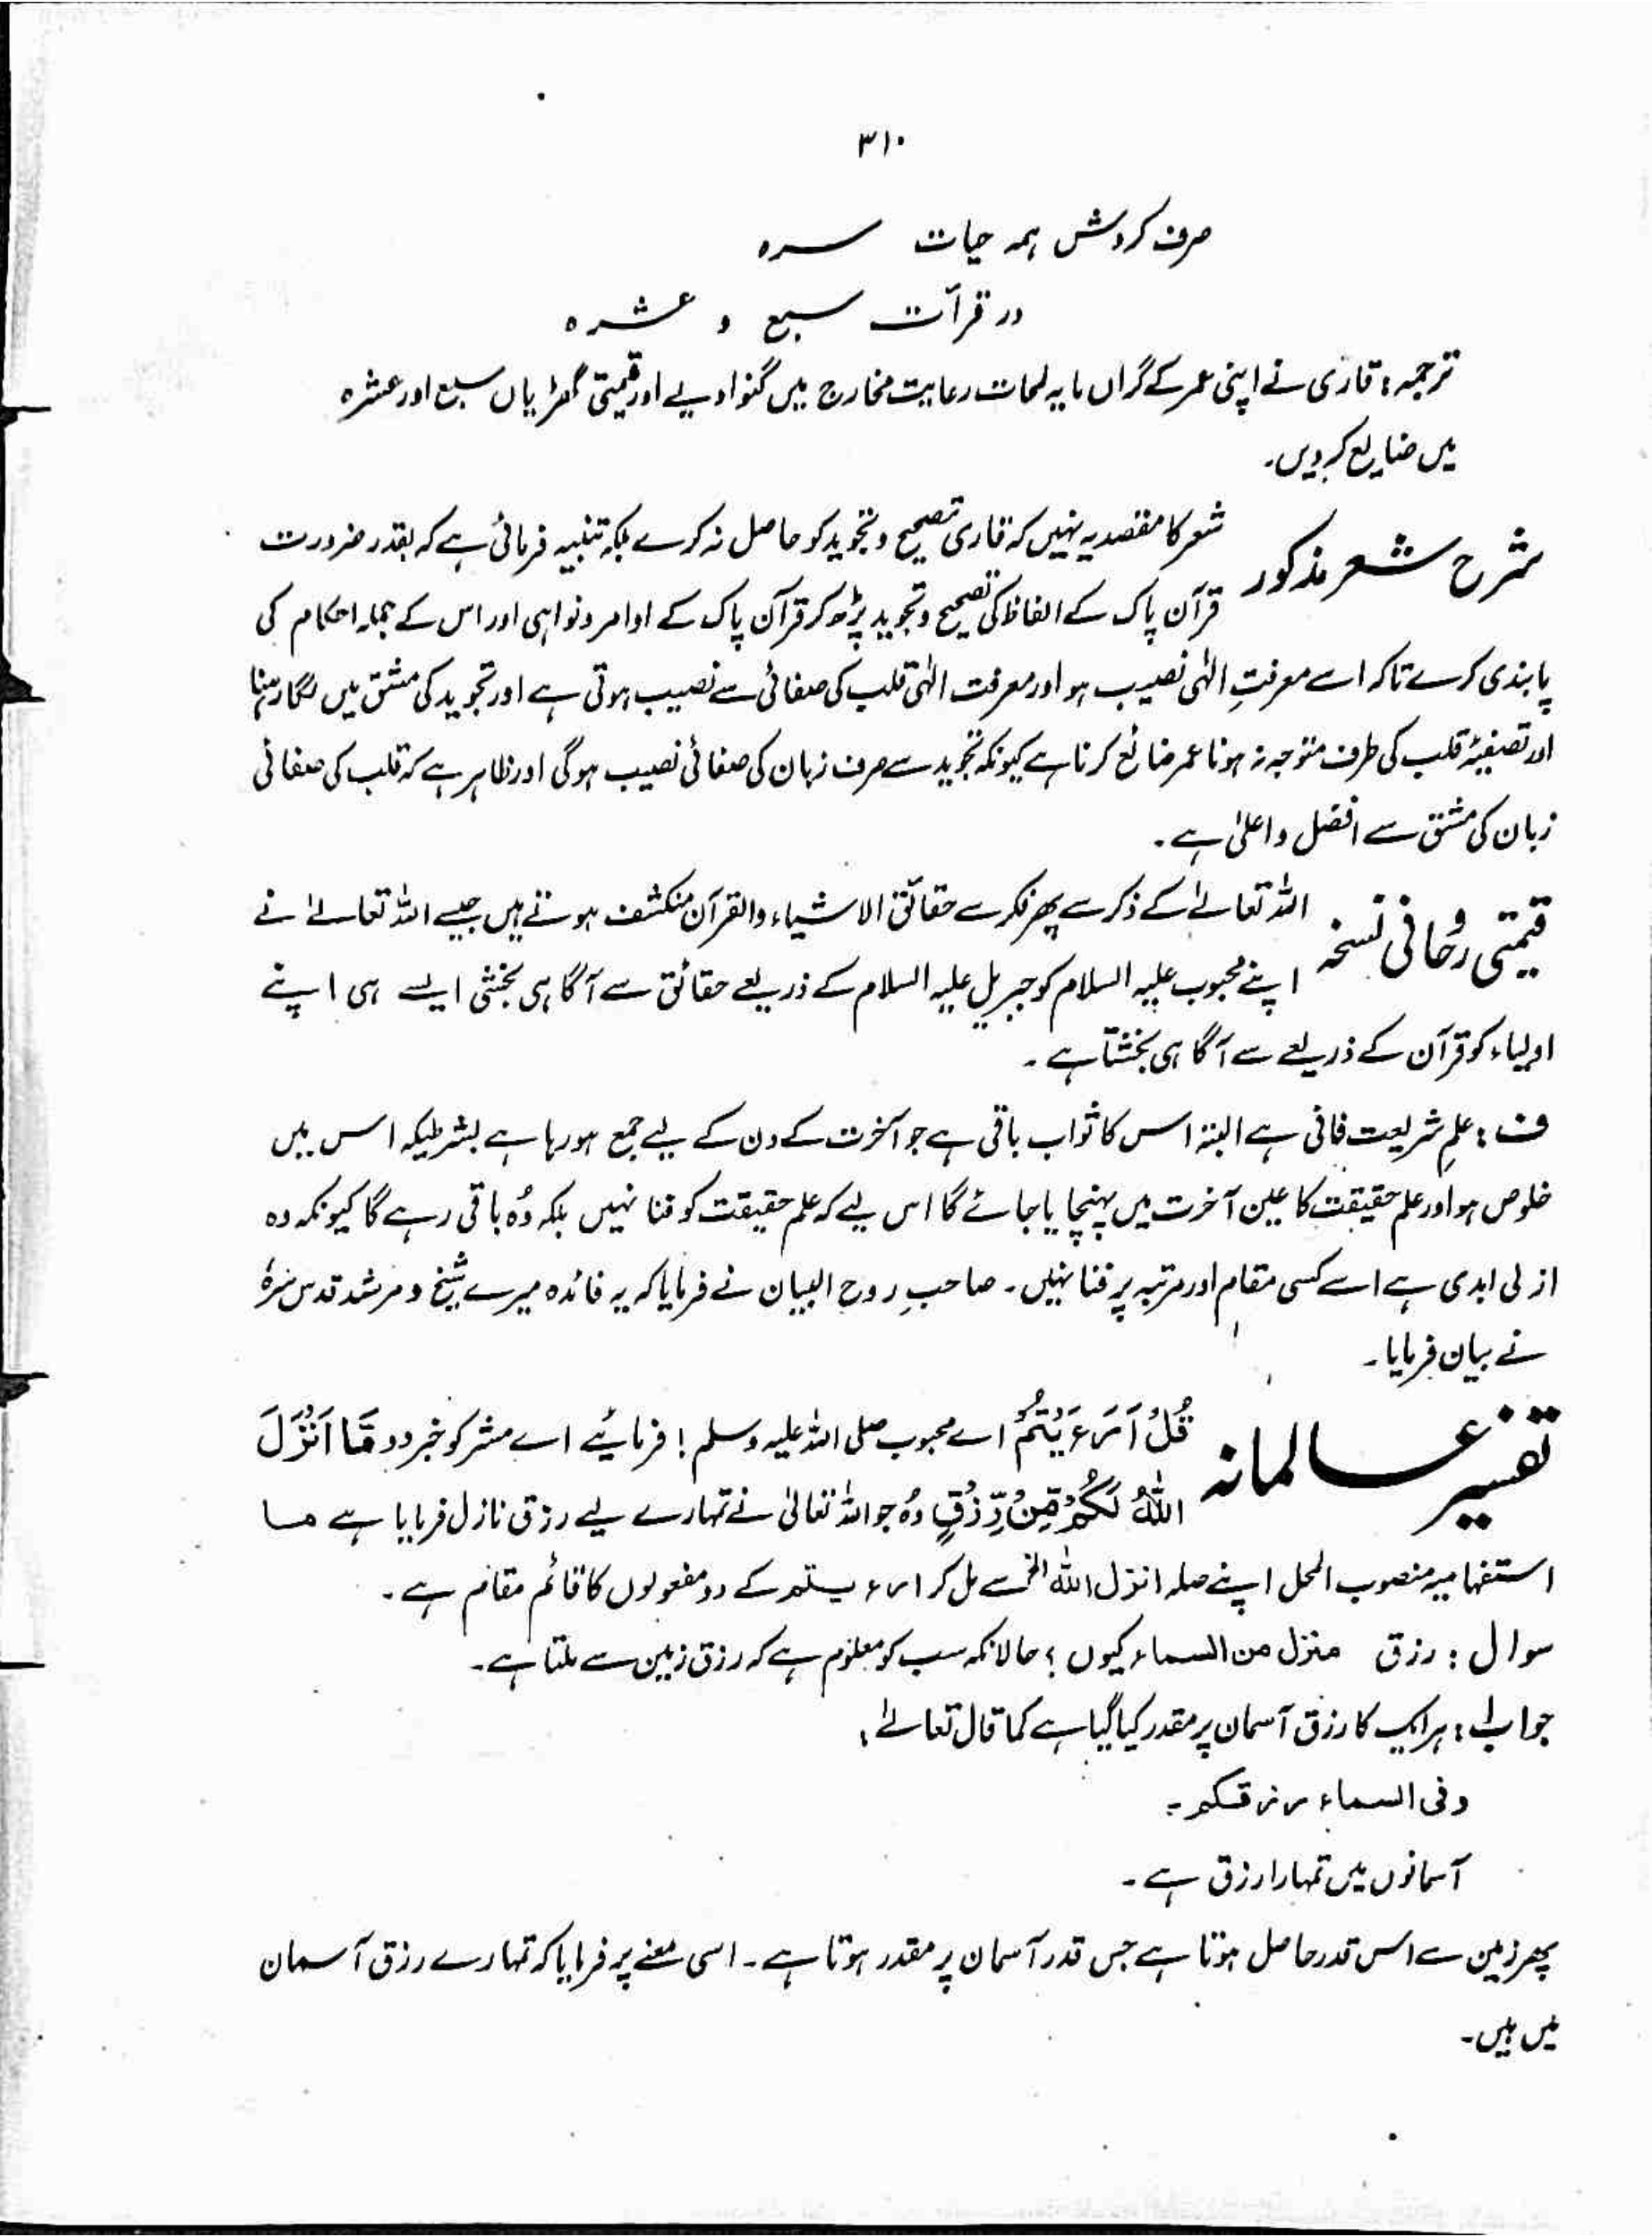 ۳۱۰
صرف کردش ہمہ حیات سرہ
در قرآت سبع و عشرہ
ترجمہ : قاری نے اپنی عمر کے گراں مایہ لمحات رعایت مخارج میں گنوا دیے اور قیمتی گھڑیاں سبع اور عشرہ
میں ضایع کر دیں۔
شرح شعر مذکور شعر کا مقصد یہ نہیں کہ قاری تصحیح و تجوید کو حاصل نہ کرے بلکہ تنبیہ فرمائی ہے کہ بقدر ضرورت
قرآن پاک کے الفاظ کی تصحیح و تجوید پڑھ کر قرآن پاک کے اوامر و نواہی اور اس کے جملہ احکام کی
پابندی کرے تاکہ اسے معرفتِ الٰہی نصیب ہو اور معرفت الٰہی قلب کی صفائی سے نصیب ہوتی ہے اور تجوید کی مشق میں لگا رہنا
اور تصفیۂ قلب کی طرف متوجہ نہ ہونا عمر ضائع کرنا ہے کیونکہ تجوید سے صرف زبان کی صفائی نصیب ہوگی اور ظاہر ہے کہ قلب کی صفائی
زبان کی مشق سے افضل و اعلیٰ ہے۔
قیمتی روحانی نسخہ اللہ تعالےٰ کے ذکر سے پھر فکر سے حقائق الاشیاء والقرآن منکشف ہوتے ہیں جیسے اللہ تعالےٰ نے
اپنے محبوب علیہ السلام کو جبریل علیہ السلام کے ذریعے حقائق سے آگاہی بخشی ایسے ہی اپنے
اولیاء کو قرآن کے ذریعے سے آگاہی بخشتا ہے۔
ف : علمِ شریعت فانی ہے البتہ اس کا ثواب باقی ہے جو آخرت کے دن کے لیے جمع ہو رہا ہے بشرطیکہ اس میں
خلوص ہو اور علم حقیقت کا عین آخرت میں پہنچایا جائے گا اس لیے کہ علم حقیقت کو فنا نہیں بلکہ وُہ باقی رہے گا کیونکہ وہ
ازلی ابدی ہے اسے کسی مقام اور مرتبہ پر فنا نہیں۔ صاحبِ روح البیان نے فرمایا کہ یہ فائدہ میرے شیخ و مرشد قدس سرہٗ
نے بیان فرمایا۔
تفسیر عالمانہ قُلْ اَرَءَیْتُمْ اے محبوب صلی اللہ علیہ وسلم ! فرمائیے اے مشرکو خبر دو مَّا اَنْزَلَ
اللّٰہُ لَکُمْ مِّنْ رِّزْقٍ وُہ جو اللہ تعالیٰ نے تمہارے لیے رزق نازل فرمایا ہے ما
استفہامیہ منصوب المحل اپنے صلہ انزل اللہ الخ سے مل کر ارءیتم کے دو مفعولوں کا قائم مقام ہے۔
سوال : رزق منزل من السماء کیوں ؟ حالانکہ سب کو معلوم ہے کہ رزق زمین سے ملتا ہے۔
جواب : ہر ایک کا رزق آسمان پر مقدر کیا گیا ہے کما قال تعالےٰ :
وفی السماء رزقکم ۔
آسمانوں میں تمہارا رزق ہے۔
پھر زمین سے اس قدر حاصل ہوتا ہے جس قدر آسمان پر مقدر ہوتا ہے۔ اسی معنے پر فرمایا کہ تمہارے رزق آسمان
میں ہیں۔